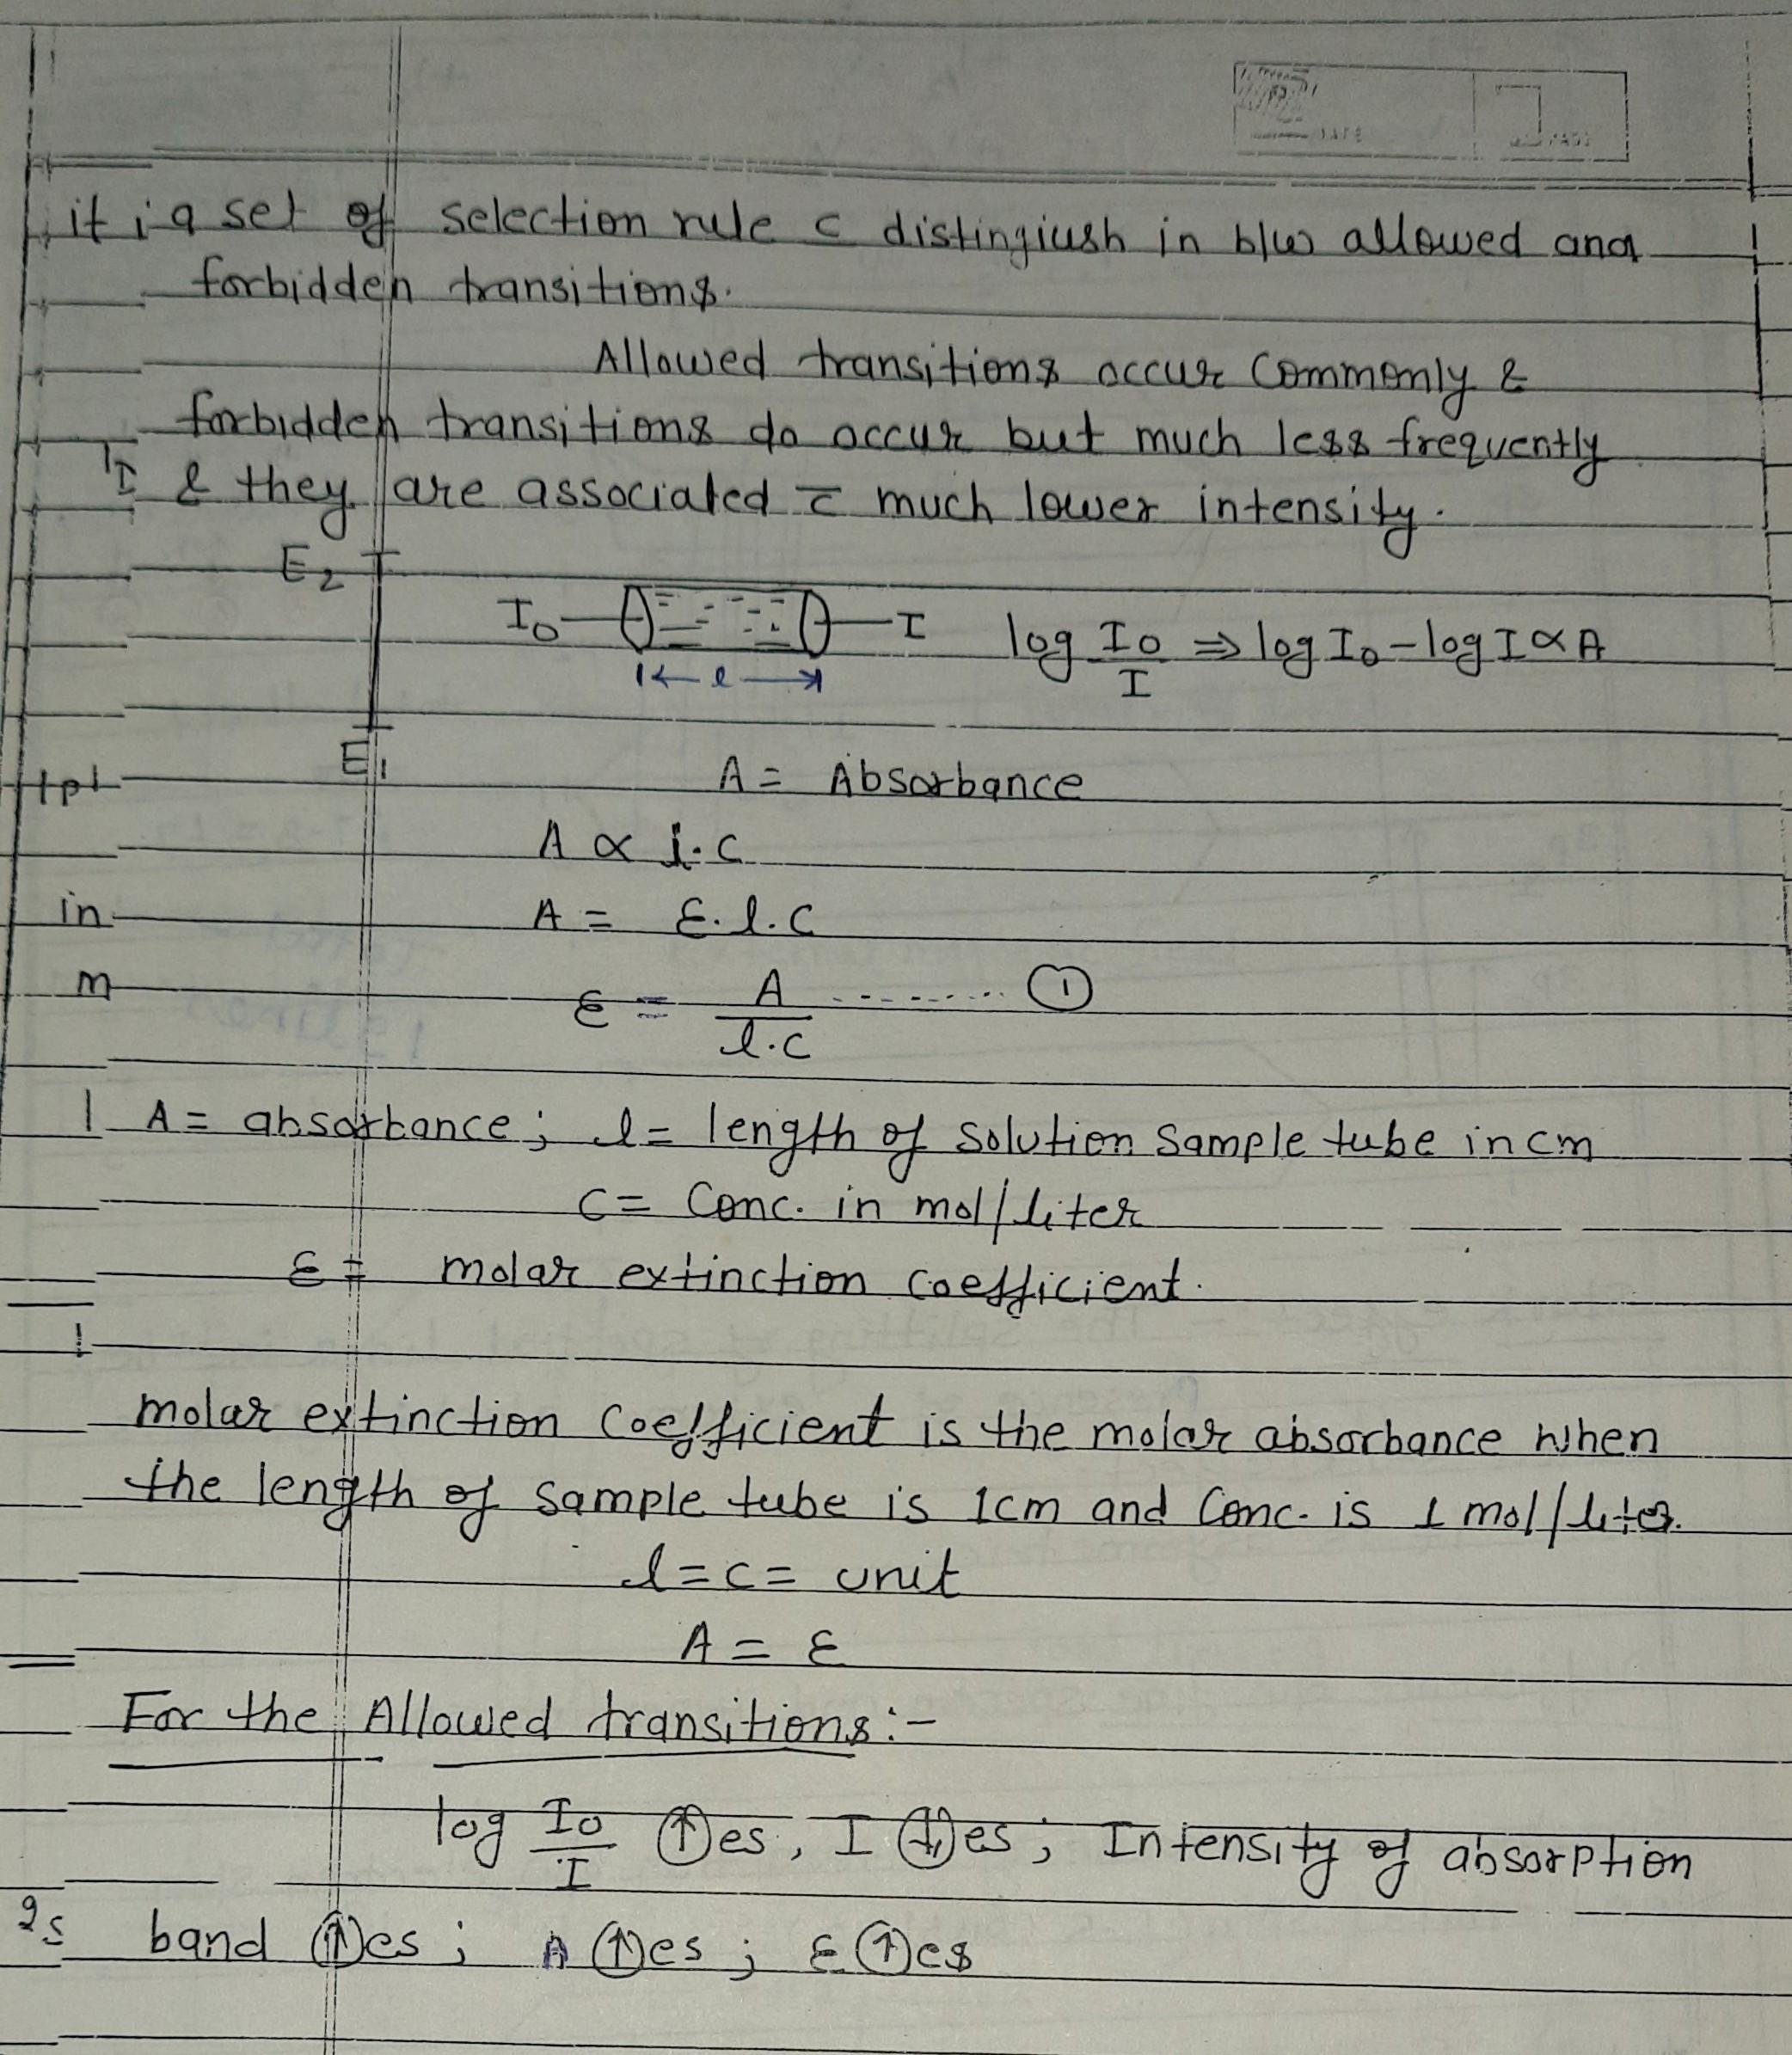 it i a set of selection rule c distingiush in b/w allowed and
forbidden transitions.
Allowed transitions occur commonly &
forbidden transitions do occur but much less frequently
& they are associated c̄ much lower intensity.
E₂
I₀ I log I₀/I ⇒ log I₀ - log I ∝ A
|← l →|
E₁
A = Absorbance
A ∝ l.c
in A = ε.l.c
m ε = A/l.c -------- ①
A = absorbance; l = length of solution sample tube in cm
C = Conc. in mol/liter
ε = molar extinction coefficient.
molar extinction coefficient is the molar absorbance when
the length of sample tube is 1cm and Conc. is 1 mol/liter.
l = c = unit
A = ε
For the Allowed transitions:-
log I₀/I ↑es, I ↓es; Intensity of absorption
band ↑es; A ↑es; ε ↑es